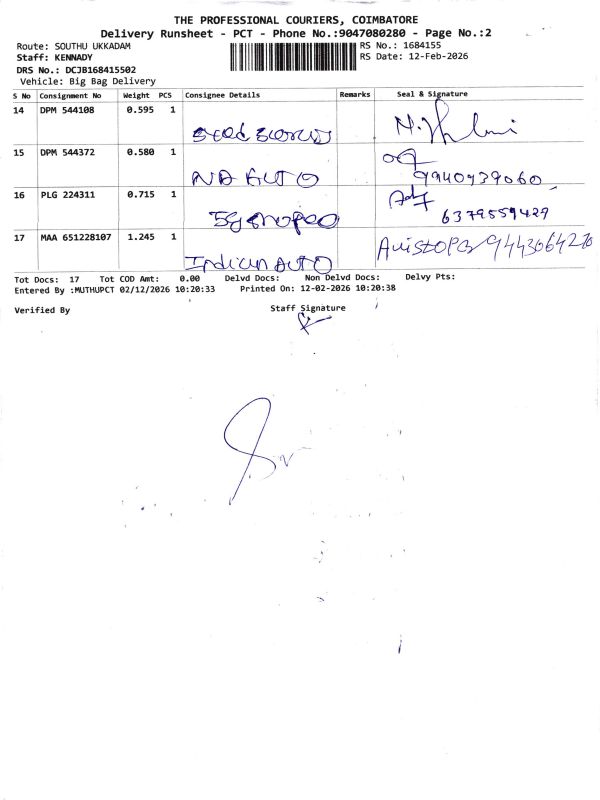 THE PROFESSIONAL COURIERS, COIMBATORE
Delivery Runsheet - PCT - Phone No.:9047080280 - Page No.:2
Route: SOUTHU UKKADAM
RS No.: 1684155
Staff: KENNADY
RS Date: 12-Feb-2026
DRS No.: DCJB168415502
Vehicle: Big Bag Delivery
S No Consignment No Weight PCS Consignee Details Remarks Seal & Signature
14 DPM 544108 0.595 1
15 DPM 544372 0.580 1
NA AUTO 9940939060
16 PLG 224311 0.715 1
6379559429
17 MAA 651228107 1.245 1
Indian Auto
Tot Docs: 17 Tot COD Amt: 0.00 Delvd Docs: Non Delvd Docs: Delvy Pts:
Entered By :MUTHUPCT 02/12/2026 10:20:33 Printed On: 12-02-2026 10:20:38
Verified By Staff Signature